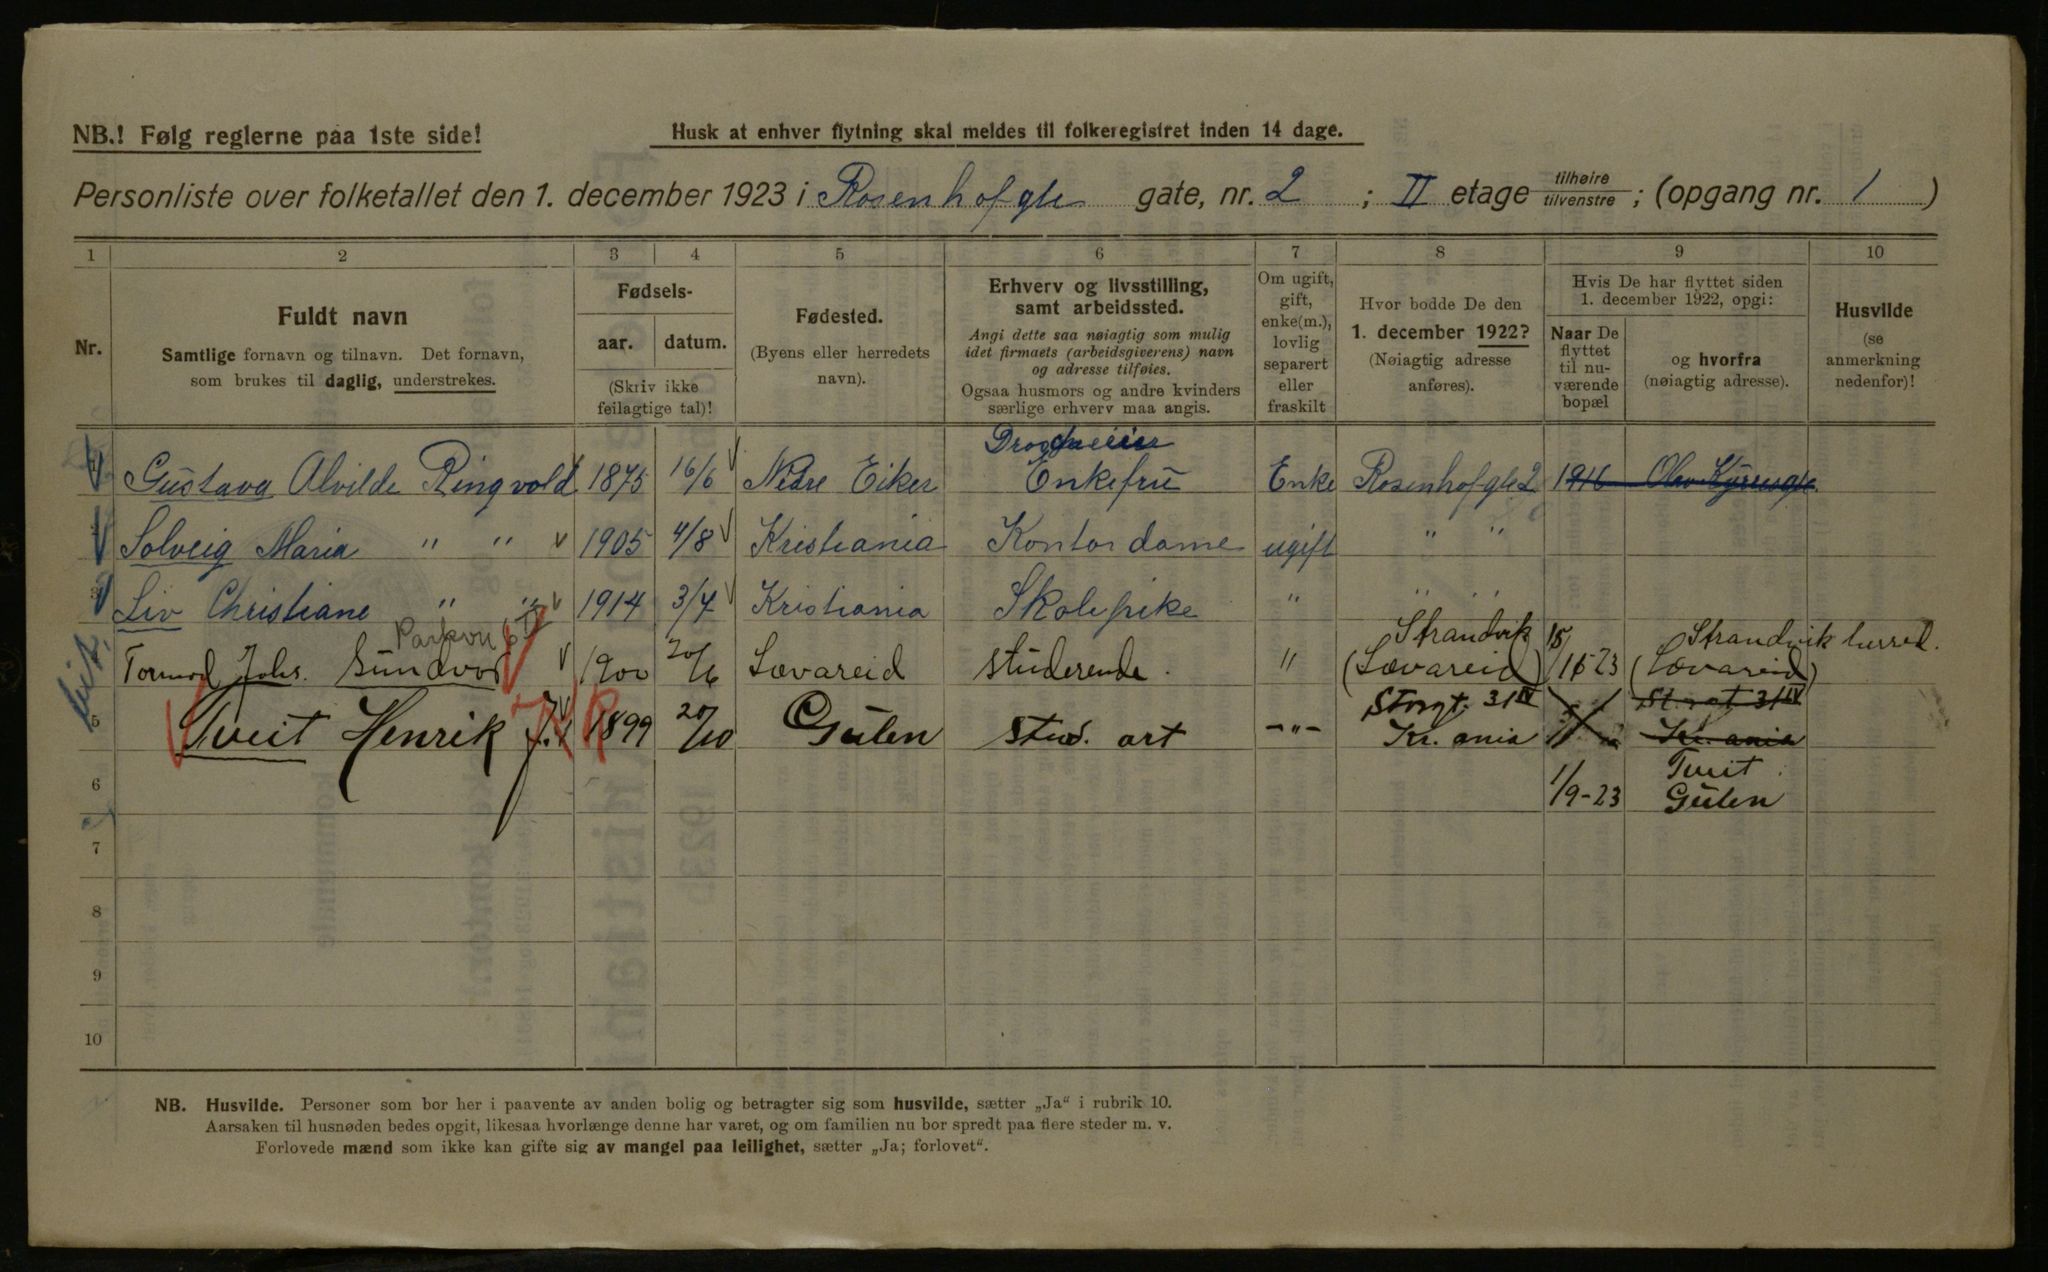 NB.! Følg reglerne paa 1ste side!
Husk at enhver flytning skal meldes til folkeregistret inden 14 dage.
Personliste over folketallet den 1. december 1923 i Rosenhofgte gate, nr. 2 ; II etage tilhøire tilvenstre ; (opgang nr. 1 )
1 2 3 4 5 6 7 8 9 10
Nr.
Fuldt navn
Samtlige fornavn og tilnavn. Det fornavn,
som brukes til daglig, understrekes.
Fødsels-
aar. datum.
(Skriv ikke
feilagtige tal)!
Fødested.
(Byens eller herredets
navn).
Erhverv og livsstilling,
samt arbeidssted.
Angi dette saa nøiagtig som mulig
idet firmaets (arbeidsgiverens) navn
og adresse tilføies.
Ogsaa husmors og andre kvinders
særlige erhverv maa angis.
Om ugift,
gift,
enke(m.),
lovlig
separert
eller
fraskilt
Hvor bodde De den
1. december 1922?
(Nøiagtig adresse
anføres).
Hvis De har flyttet siden
1. december 1922, opgi:
Naar De
flyttet
til nu-
værende
bopæl
og hvorfra
(nøiagtig adresse).
Husvilde
(se
anmerkning
nedenfor)!
Gustava Alvilde Ringvold 1875 16/6 Nedre Eiker Enkefru Enke Rosenhofgte 2 1916
Solveig Maria " " 1905 4/8 Kristiania Kontordame ugift " "
3 Liv Christiane " " 1914 3/7 Kristiania Skolepike " " "
Tormod Johs. Sundvor 1900 20/6 Sævareid studerende. " Strandvik (Sævareid) 15/1 1523 Strandvik herred. (Sævareid)
5 Tveit Henrik J. 1899 20/10 Gulen stud. art -"- Storgt. 31 IV Kr.ania Storgt 31 IV Kr.ania
6 1/9-23 Tveit Gulen
7
8
9
10
NB. Husvilde. Personer som bor her i paavente av anden bolig og betragter sig som husvilde, sætter „Ja" i rubrik 10.
Aarsaken til husnøden bedes opgit, likesaa hvorlænge denne har varet, og om familien nu bor spredt paa flere steder m. v.
Forlovede mænd som ikke kan gifte sig av mangel paa leilighet, sætter „Ja; forlovet".